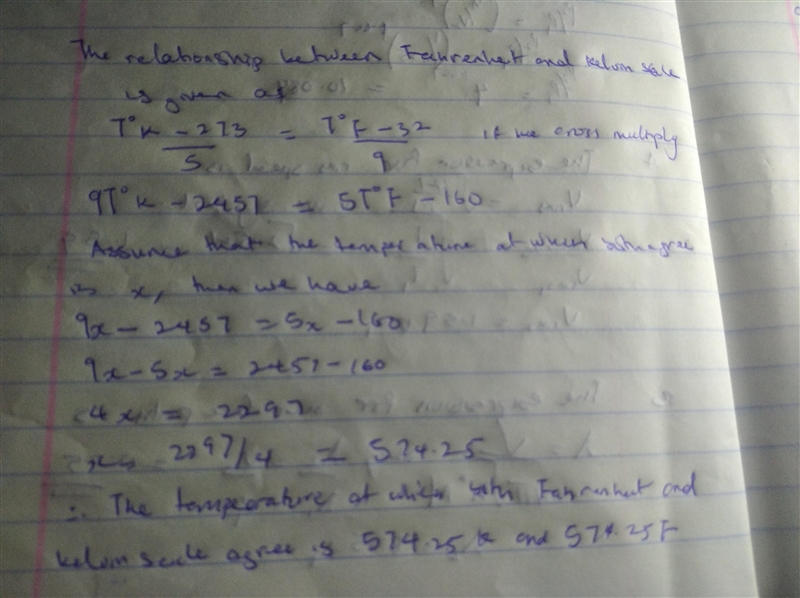 The relationship between Fahrenheit and Kelvin scale
is given as
T°K - 273 / 5 = T°F - 32 / 9 if we cross multiply
9T°K - 2457 = 5T°F - 160
Assume that the temperature at which both agree
is x, then we have
9x - 2457 = 5x - 160
9x - 5x = 2457 - 160
4x = 2297
x = 2297/4 = 574.25
∴ The temperature at which both Fahrenheit and
Kelvin scale agree is 574.25 K and 574.25 F